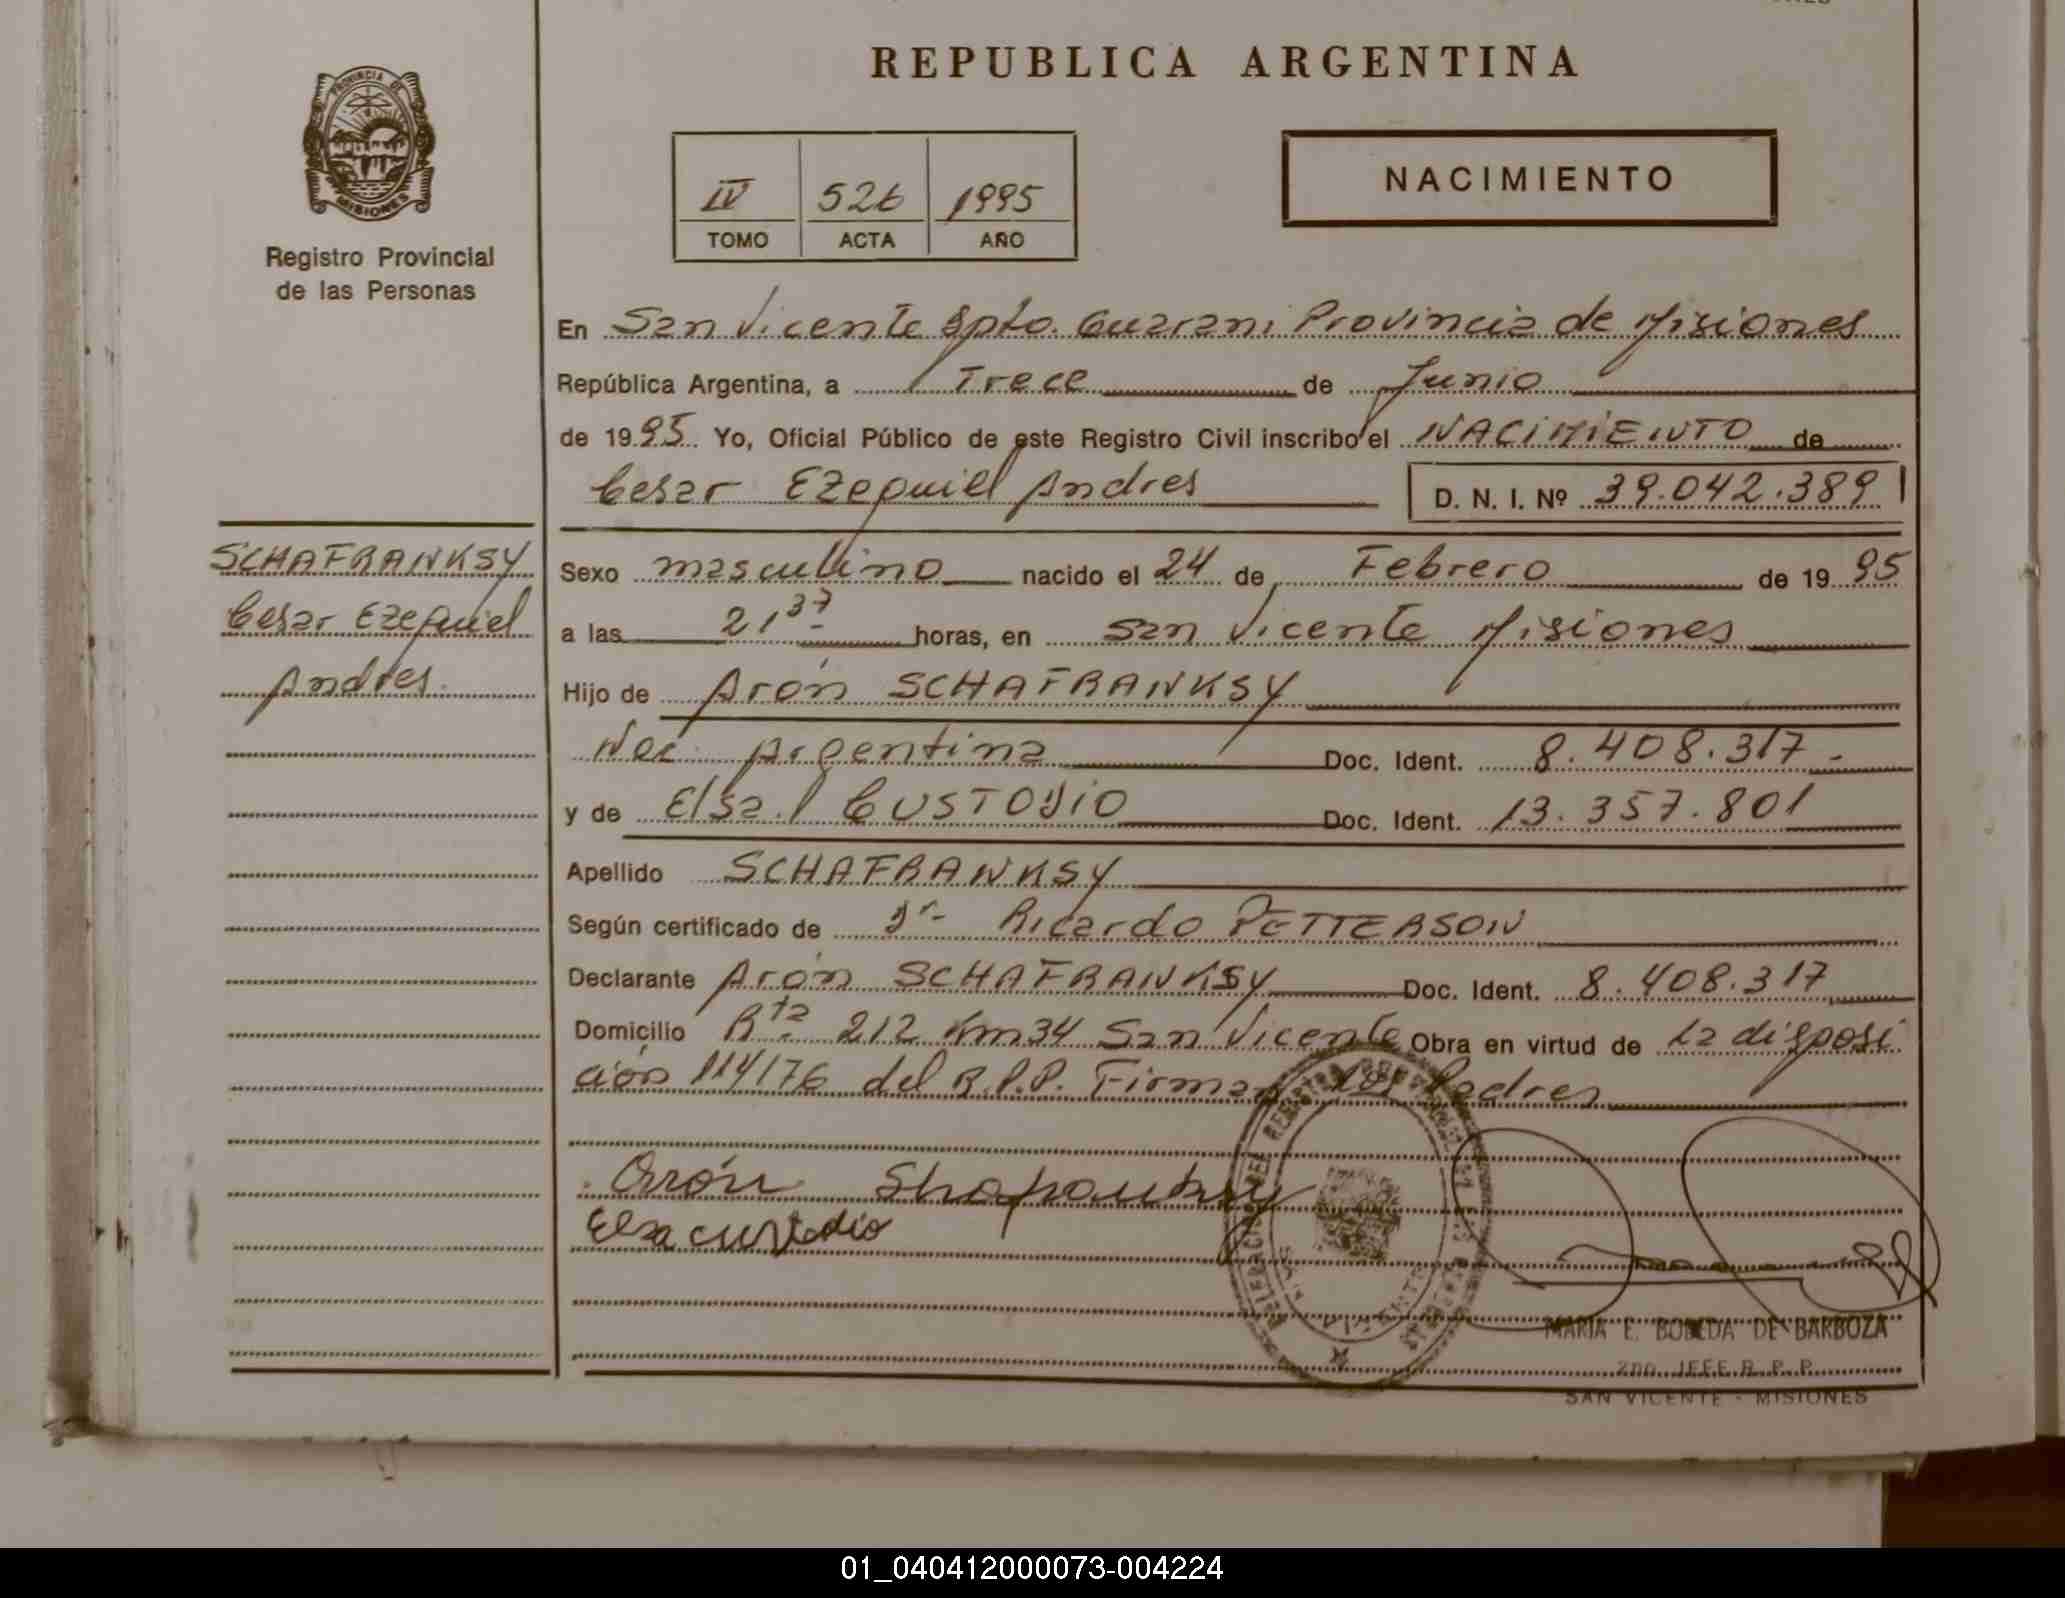 REPUBLICA ARGENTINA
PROVINCIA DE
MISIONES
Registro Provincial
de las Personas
IV 526 1995
TOMO ACTA AÑO
NACIMIENTO
En San Vicente Dpto. Guarani Provincia de Misiones
República Argentina, a Trece de Junio
de 1995 Yo, Oficial Público de este Registro Civil inscribo el NACIMIENTO de
Cesar Ezequiel Andres D. N. I. Nº 39.042.389
SCHAFRANKSY
Cesar Ezequiel
Andres.
Sexo masculino nacido el 24 de Febrero de 1995
a las 21 37 horas, en San Vicente Misiones
Hijo de Arón SCHAFRANKSY
Nac. Argentina Doc. Ident. 8.408.317-
y de Elsa CUSTODIO Doc. Ident. 13.357.801
Apellido SCHAFRANKSY
Según certificado de Dr- Ricardo PETTERSON
Declarante Arón SCHAFRANKSY Doc. Ident. 8.408.317
Domicilio Rta 212 Km 34 San Vicente Obra en virtud de La disposi
ción 114/76 del R.P.P. Firman los Padres
Arón
Elsa custodio
MARIA E. BOBEDA DE BARBOZA
2DO. JEFE R. P. P.
SAN VICENTE - MISIONES
01_040412000073-004224